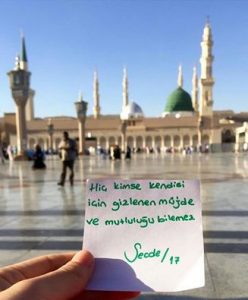 Hiç kimse kendisi
için gizlenen müjde
ve mutluluğu bilemez
Secde/17